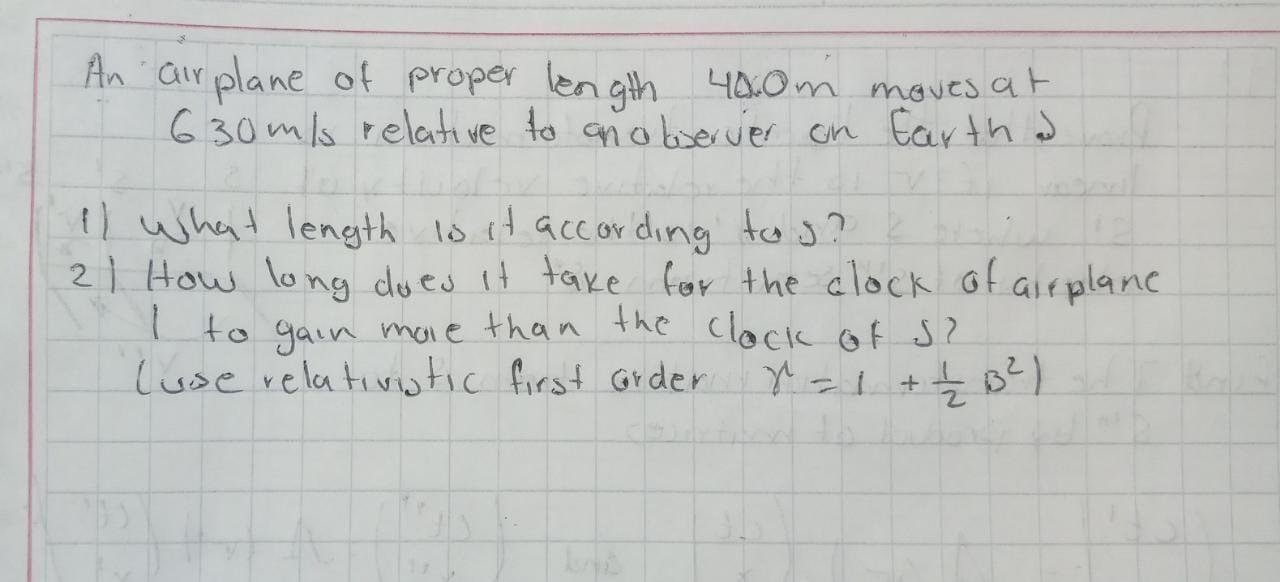 An airplane of proper length 40.0m moves at
630m/s relative to an observer on Earth S
1) What length is it according to S?
2) How long does it take for the clock of airplane
1 to gain more than the clock of S?
(use relativistic first order γ = 1 + 1/2 β²)